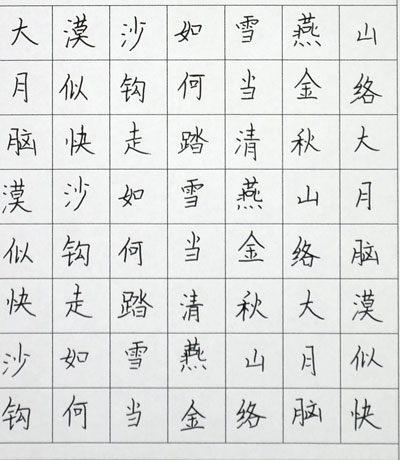 大漠沙如雪燕山
月似钩何当金络
脑快走踏清秋大
漠沙如雪燕山月
似钩何当金络脑
快走踏清秋大漠
沙如雪燕山月似
钩何当金络脑快